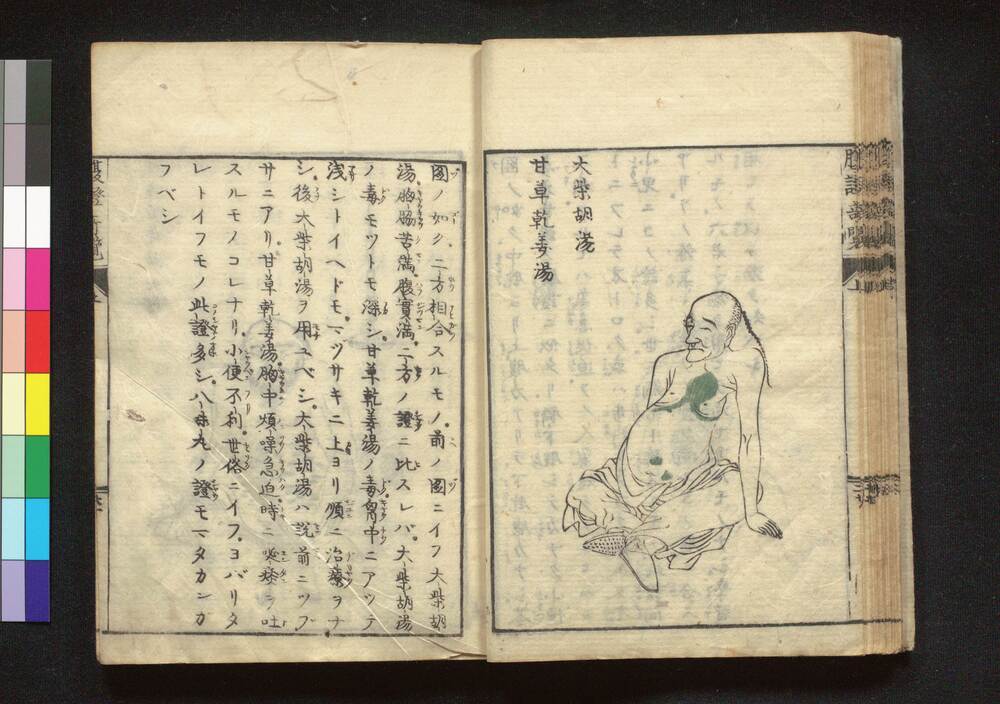 大柴胡湯
甘草乾姜湯
圖ノ如ク二方相合スルモノ前ノ圖ニイフ大柴胡
湯胸脇苦滿腹實滿二方ノ證ニ比スレバ大柴胡湯
ノ毒モツトモ深シ甘草乾姜湯ノ毒胷中ニアツテ
淺シトイヘドモマヅサキニ上ヨリ順ニ治療ヲナ
シ後大柴胡湯ヲ用ユベシ大柴胡湯ハ説前ニツブ
サニアリ甘草乾姜湯胸中煩噪急迫時ニ涎ヲ吐
スルモノコレナリ小便不利世俗ニイフヨバリタ
レトイフモノ此證多シ八味丸ノ證モマタカンガ
フベシ